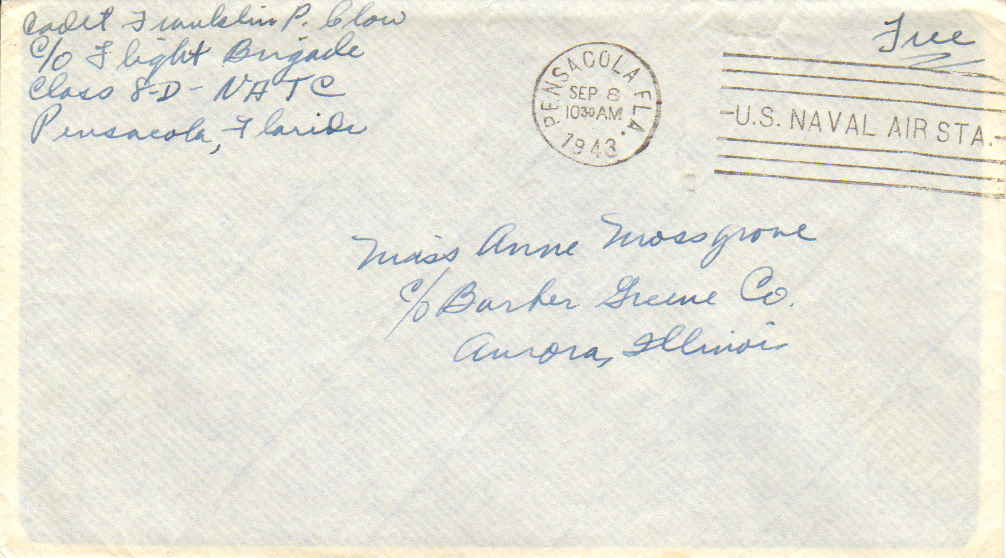 Cadet Franklin P. Clow
c/o Flight Brigade
Class 8-D - NATC
Pensacola, Florida
Free
PENSACOLA FLA.
SEP 8
10 30 AM
1943
U.S. NAVAL AIR STA.
Miss Anne Mossgrove
c/o Barber Greene Co.
Aurora, Illinois